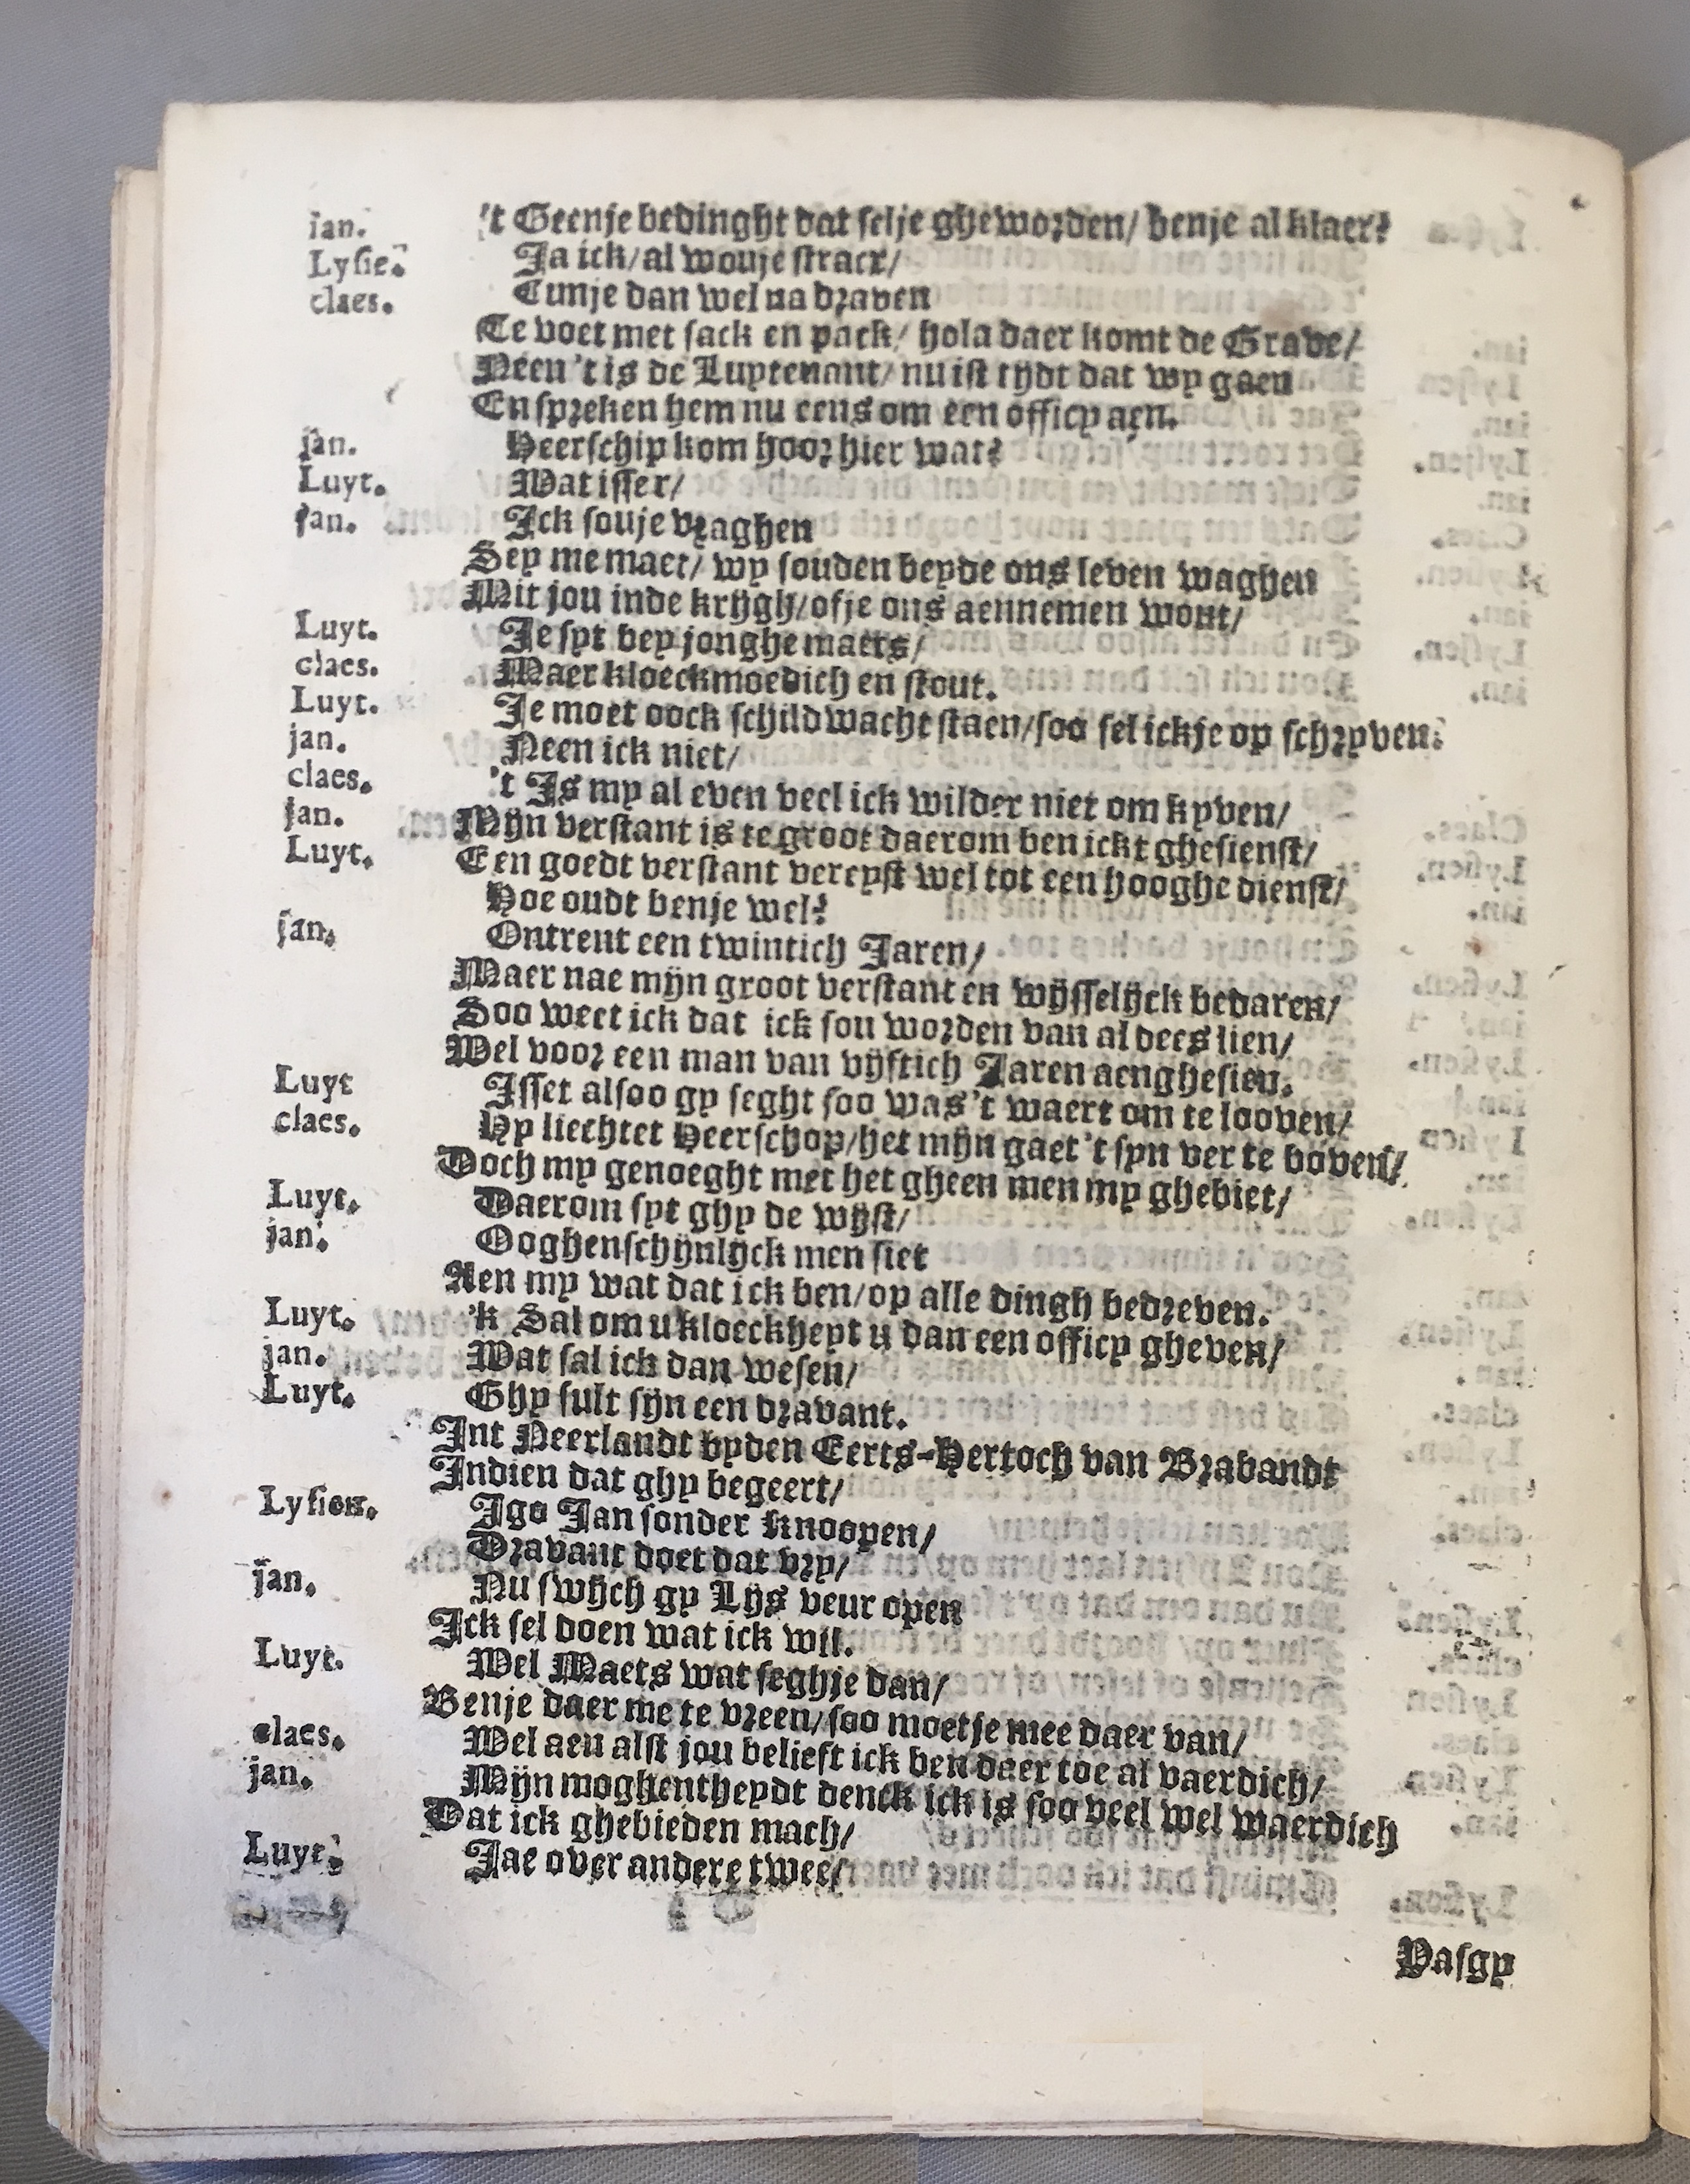 ian. 't Geenje bedinght dat selje gheworden/ benje al klaer?
Lysie. Ja ick/ al wouje stracx/
claes. Cunje dan wel na draven
Te voet met sack en pack/ hola daer komt de Grave/
Neen 't is de Luytenant/ nu ist tijdt dat wy gaen
En spreken hem nu eens om een officy aen.
jan. Heerschip kom hoor hier wat?
Luyt. Wat isser/
jan. Ick souje vraghen
Sey me maet/ wy souden beyde ons leven waghen
Mit jou inde krijgh/ ofje ons aennemen wout/
Luyt. Je syt bey jonghe maets/
claes. Maer kloeckmoedich en stout.
Luyt. Je moet oock schildwacht staen/ soo sel ickje op schryven.
jan. Neen ick niet/
claes. 't Is my al even veel ick wilder niet om kyven/
jan. Mijn verstant is te groot daerom ben ickt ghesienst/
Luyt. Een goedt verstant vereyst wel tot een hooghe dienst/
Hoe oudt benje wel?
jan. Ontrent een twintich Jaren/
Maer nae mijn groot verstant en wijsselijck bedaren/
Soo weet ick dat ick sou worden van al dees lien/
Wel voor een man van vijftich Jaren aenghesien.
Luyt Isset alsoo gy seght soo was 't waert om te looven/
claes. Hy liechtet Heerschop/ het mijn gaet 't syn ver te boven/
Doch my genoeght met het gheen men my ghebiet/
Luyt. Daerom syt ghy de wijst/
jan. Ooghenschijnlijck men siet
Aen my wat dat ick ben/ op alle dingh bedreven.
Luyt. 'k Sal om u kloeckheyt u dan een officy gheven/
jan. Wat sal ick dan wesen/
Luyt. Ghy sult sijn een dravant.
Int Neerlandt byden Eerts-Hertoch van Brabandt
Indien dat ghy begeert/
Lysien. Jgo Jan sonder knoopen/
Dravant doet dat vry/
jan. Nu swijch gy Lijs veur open
Ick sel doen wat ick wil.
Luyt. Wel Maets wat seghje dan/
Benje daer me te vreen/ soo moetje mee daer van/
claes. Wel aen alst jou belieft ick ben daer toe al vaerdich/
jan. Mijn moghentheydt denck ick is soo veel wel waerdich
Dat ick ghebieden mach/
Luyt. Jae over andere twee/
Vasgy